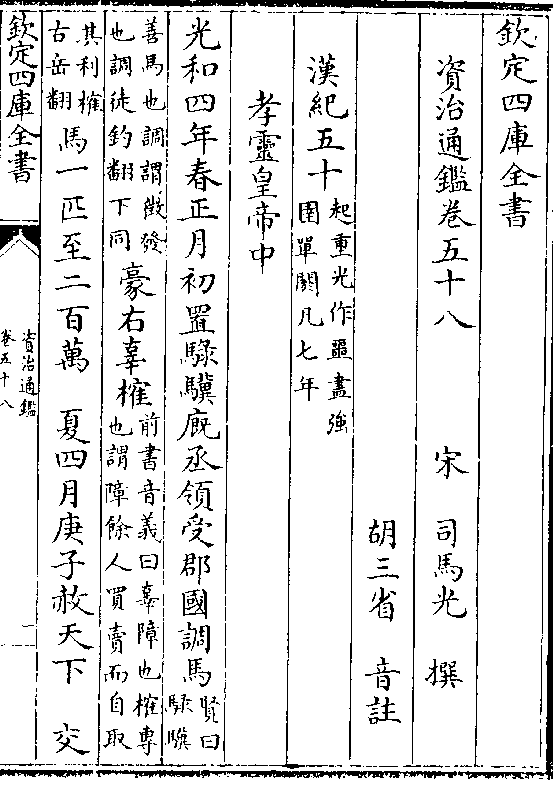 欽定四庫全書
資治通鑑卷五十八
宋 司馬光 撰
胡三省 音註
漢紀五十起重光作噩盡強
圉單閼凡七年
孝靈皇帝中
光和四年春正月初置騄驥廐丞領受郡國調馬賢曰
騄驥
善馬也調謂徵發
也調徒釣翻下同豪右辜榷前書音義曰辜障也榷專
也謂障餘人買賣而自取
其利榷
古岳翻馬一匹至二百萬 夏四月庚子赦天下 交
欽定四庫全書
資治通鑑
卷五十八
一